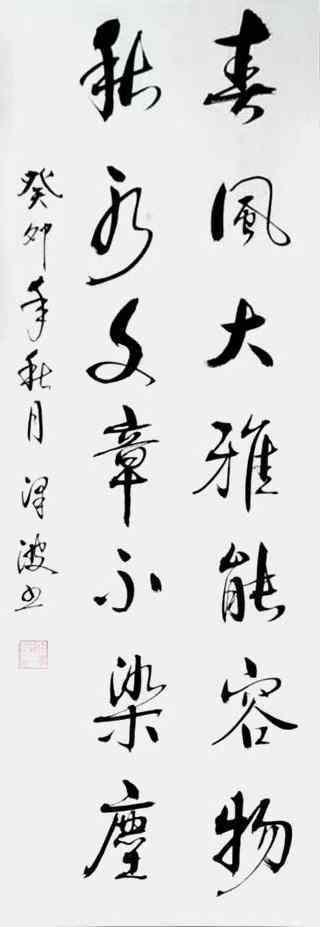 春風大雅能容物
秋水文章不染塵
癸卯年秋月 泽波书